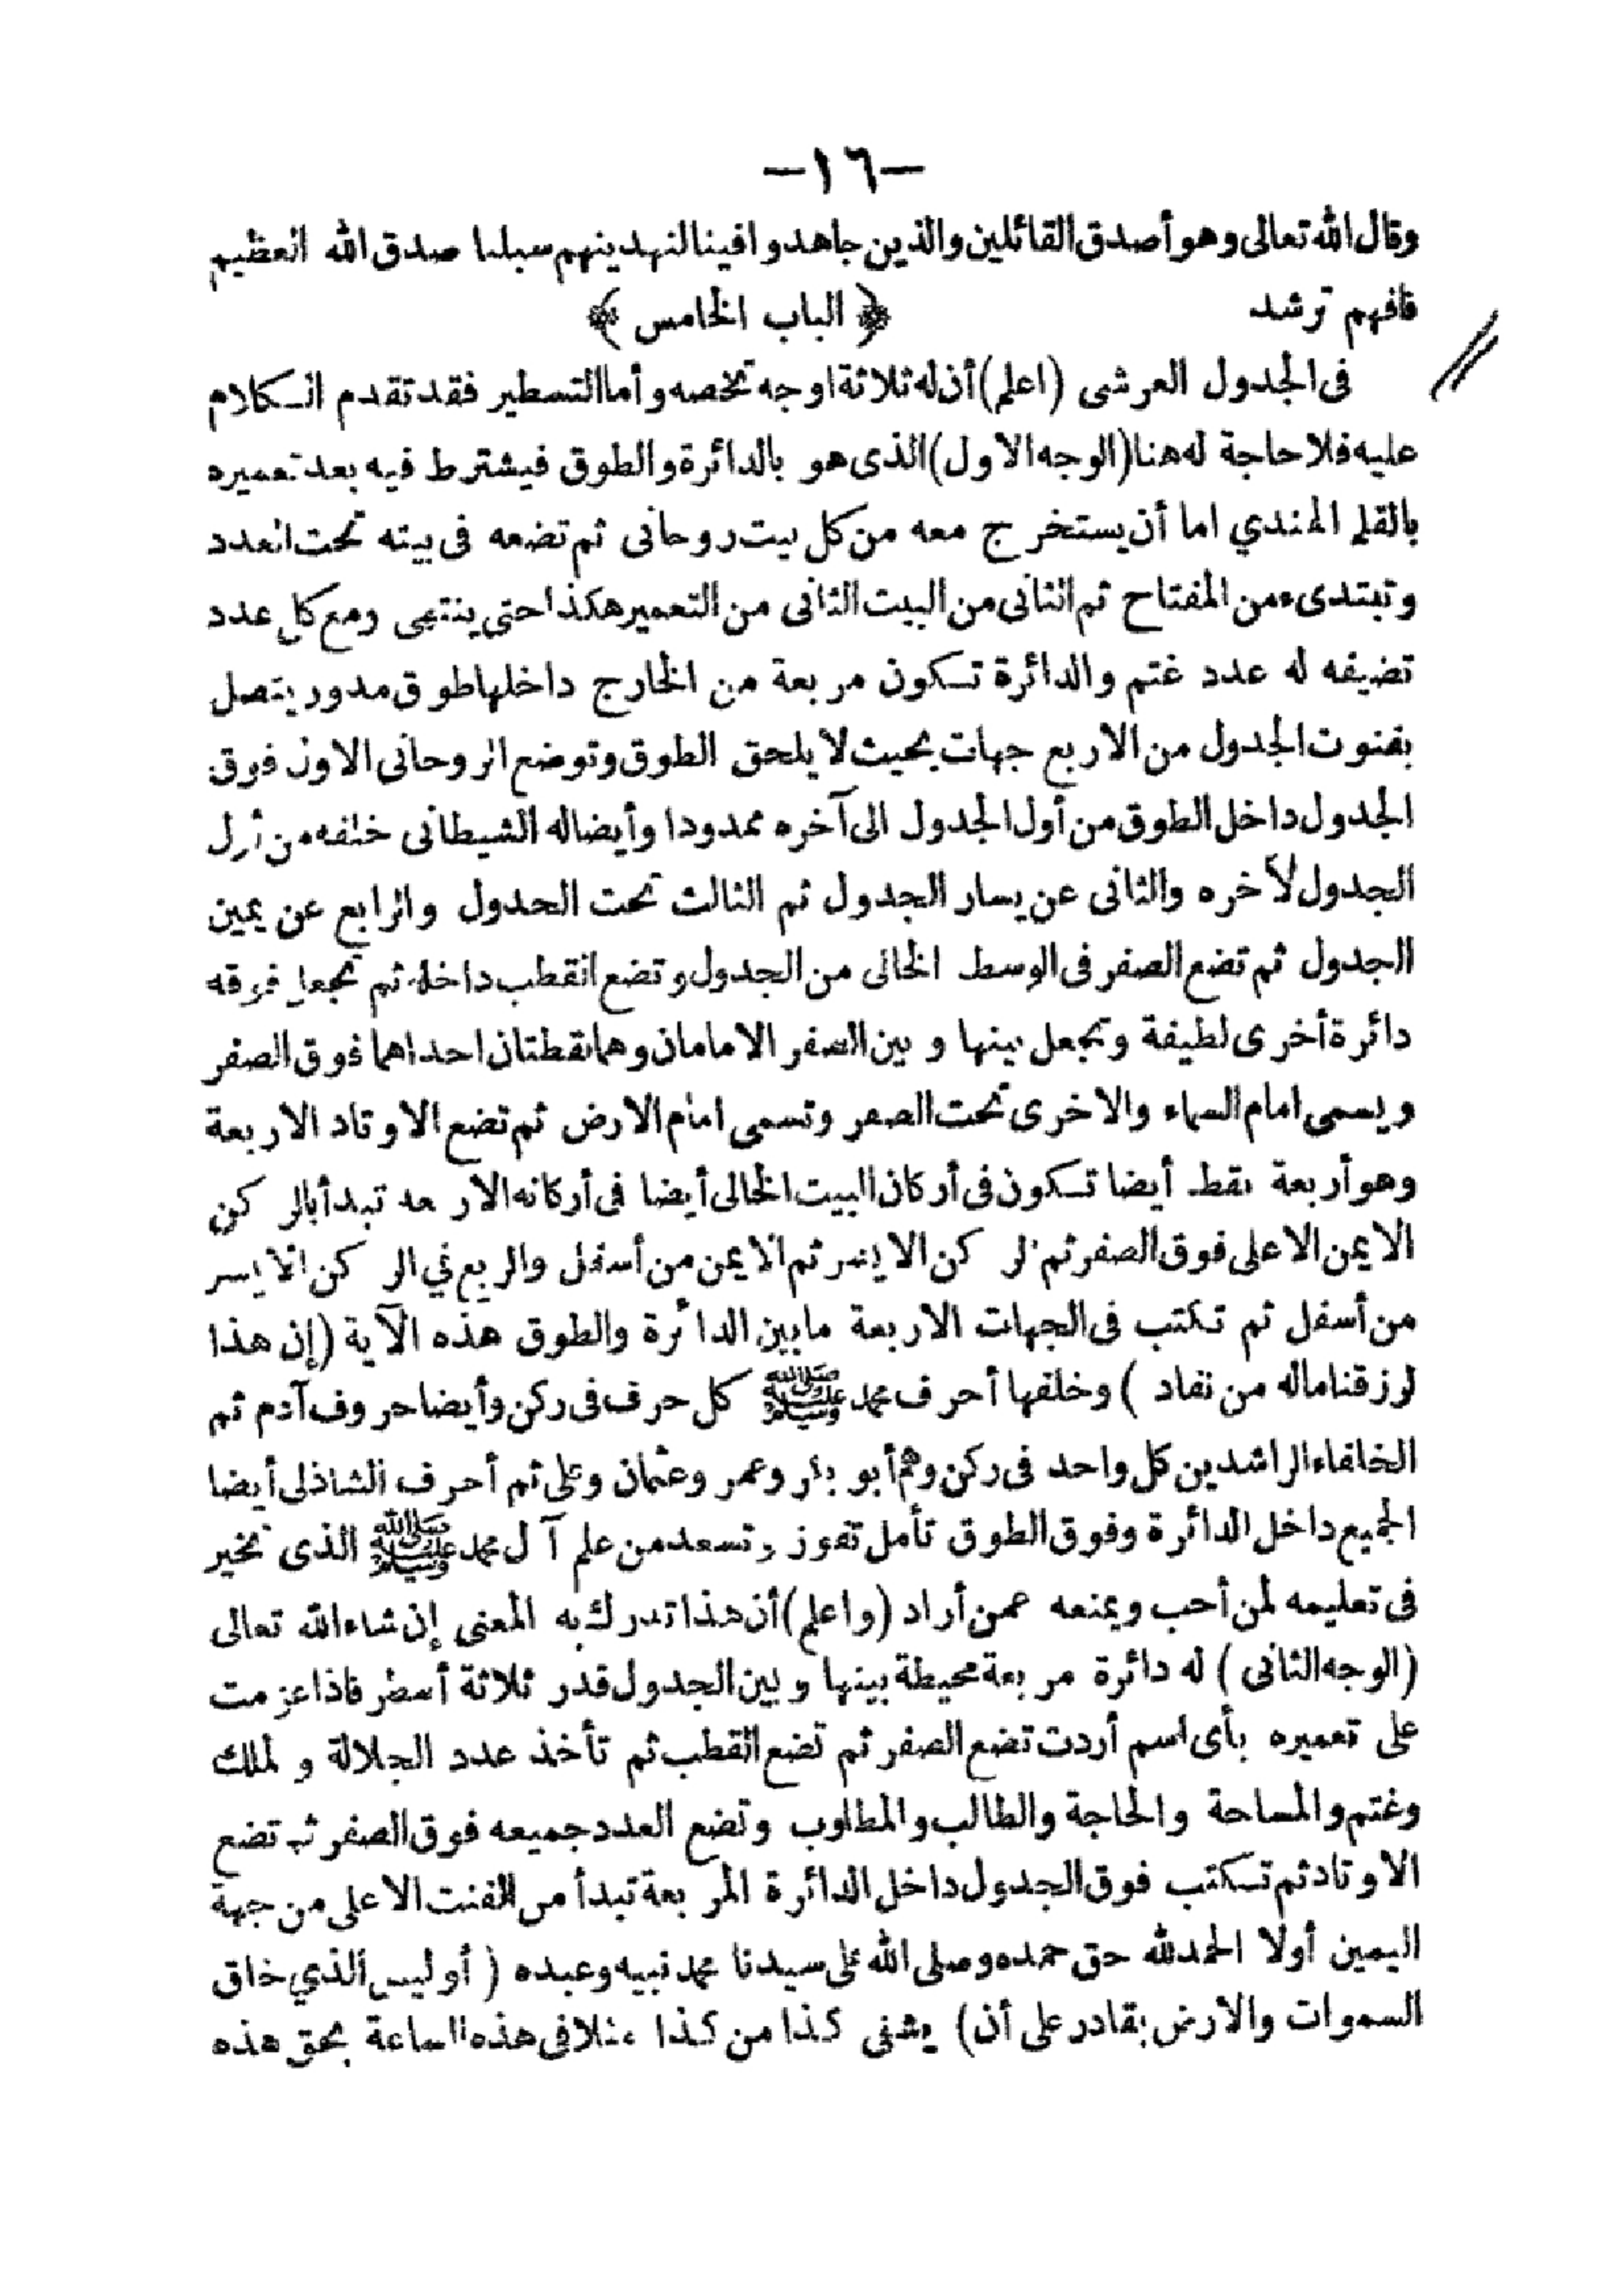 —١٦—
وقال الله تعالى وهو أصدق القائلين والذين جاهدوا فينا لنهدينهم سبلنا صدق الله العظيم
فافهم ترشد ﴿ الباب الخامس ﴾
فى الجدول العرشى (اعلم) أن له ثلاثة اوجه تخصه وأما التسطير فقد تقدم الكلام
عليه فلا حاجة له هنا (الوجه الاول) الذى هو بالدائرة والطوق فيشترط فيه بعد تعميره
بالقلم الهندي اما أن يستخرج معه من كل بيت روحانى ثم تضعه فى بيته تحت العدد
وتبتدىء من المفتاح ثم الثانى من البيت الثانى من التعمير هكذا حتى ينتهى ومع كل عدد
تضيفه له عدد غتم والدائرة تكون مربعة من الخارج داخلها طوق مدور يتصل
بفنوت الجدول من الاربع جهات بحيث لا يلحق الطوق وتوضع الروحانى الاول فوق
الجدول داخل الطوق من أول الجدول الى آخره ممدودا وأيضا له الشيطانى خلفه من أول
الجدول لآخره والثانى عن يسار الجدول ثم الثالث تحت الجدول والرابع عن يمين
الجدول ثم تضع الصفر فى الوسط الخالى من الجدول وتضع القطب داخله ثم تجعل فوقه
دائرة أخرى لطيفة وتجعل بينها وبين الصفر الامامان وهما نقطتان احداهما فوق الصفر
ويسمى امام السماء والاخرى تحت الصفر وتسمى امام الارض ثم تضع الاوتاد الاربعة
وهو أربعة نقط أيضا تكون فى أركان البيت الخالى أيضا فى أركانه الاربعة تبدأ بالركن
الايمن الاعلى فوق الصفر ثم الركن الايسر ثم الايمن من أسفل والربع في الركن الايسر
من أسفل ثم تكتب فى الجهات الاربعة مابين الدائرة والطوق هذه الآية (إن هذا
لرزقنا ماله من نفاد ) وخلفها أحرف محمد ﷺ كل حرف فى ركن وأيضا حروف آدم ثم
الخلفاء الراشدين كل واحد فى ركن وهم أبو بكر وعمر وعثمان وعلى ثم أحرف الشاذلى أيضا
الجميع داخل الدائرة وفوق الطوق تأمل تفوز وتسعد من علم آل محمد ﷺ الذى تخير
فى تعليمه لمن أحب ويمنعه عمن أراد (واعلم) أن هذا تدرك به المعنى إن شاء الله تعالى
(الوجه الثانى ) له دائرة مربعة محيطة بينها وبين الجدول قدر ثلاثة أسطر فاذا عزمت
على تعميره بأى اسم أردت تضع الصفر ثم تضع القطب ثم تأخذ عدد الجلالة و لملك
وغتم والمساحة والحاجة والطالب والمطلوب وتضع العدد جميعه فوق الصفر ثم تضع
الاوتاد ثم تكتب فوق الجدول داخل الدائرة المربعة تبدأ من الفنت الاعلى من جهة
اليمين أولا الحمد لله حق حمده وصلى الله على سيدنا محمد نبيه وعبده ( أوليس الذي خلق
السموات والارض بقادر على أن) يشفى كذا من كذا مثلا فى هذه الساعة بحق هذه